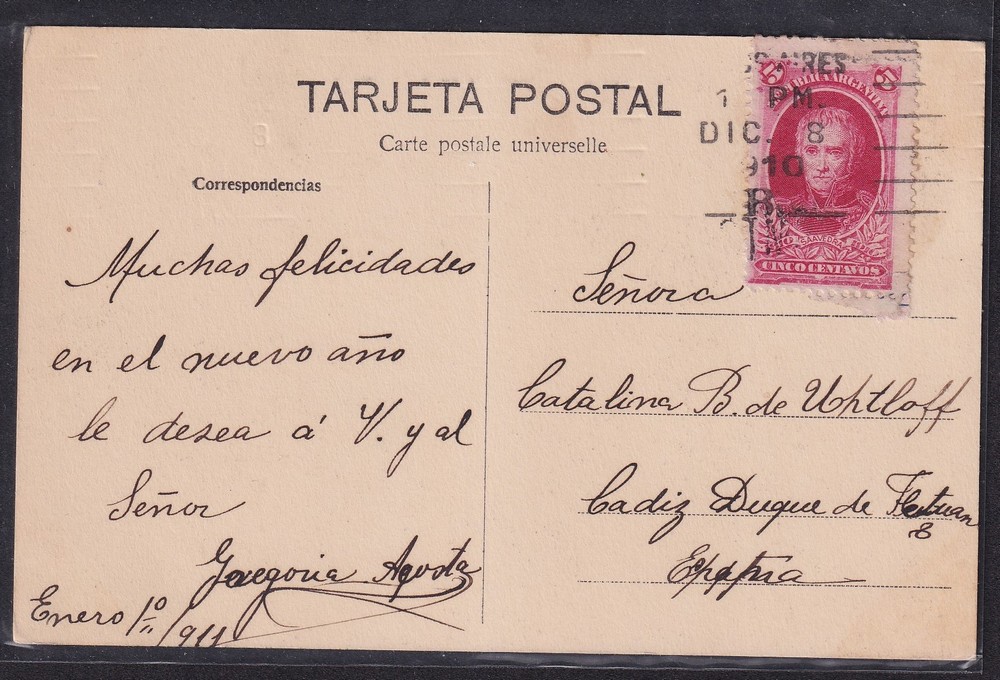 TARJETA POSTAL
Carte postale universelle
Correspondencias
AIRES
1 PM.
DIC. 8
910
5 5
REPUBLICA ARGENTINA
SAAVEDRA
CINCO CENTAVOS
Muchas felicidades
en el nuevo año
le desea á V. y al
Señor
Gregoria Agosta
Enero 1º/911
Señora
Catalina B. de Uhtloff
Cadiz Duque de Tetuan
8